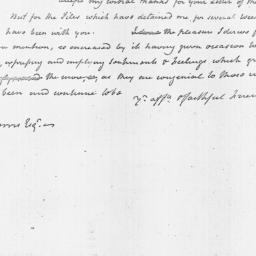 my cordial thanks for your letter of the
But for the Piles which have detained me, for several weeks
have been with you. the pleasure I derive f
mention, is encreased by it having given occasion to
, expressing and implying sentiments & feelings which gr
the more, as they are congenial to those w
been and continue to be yr. affte. & faithful friend
Esqr.